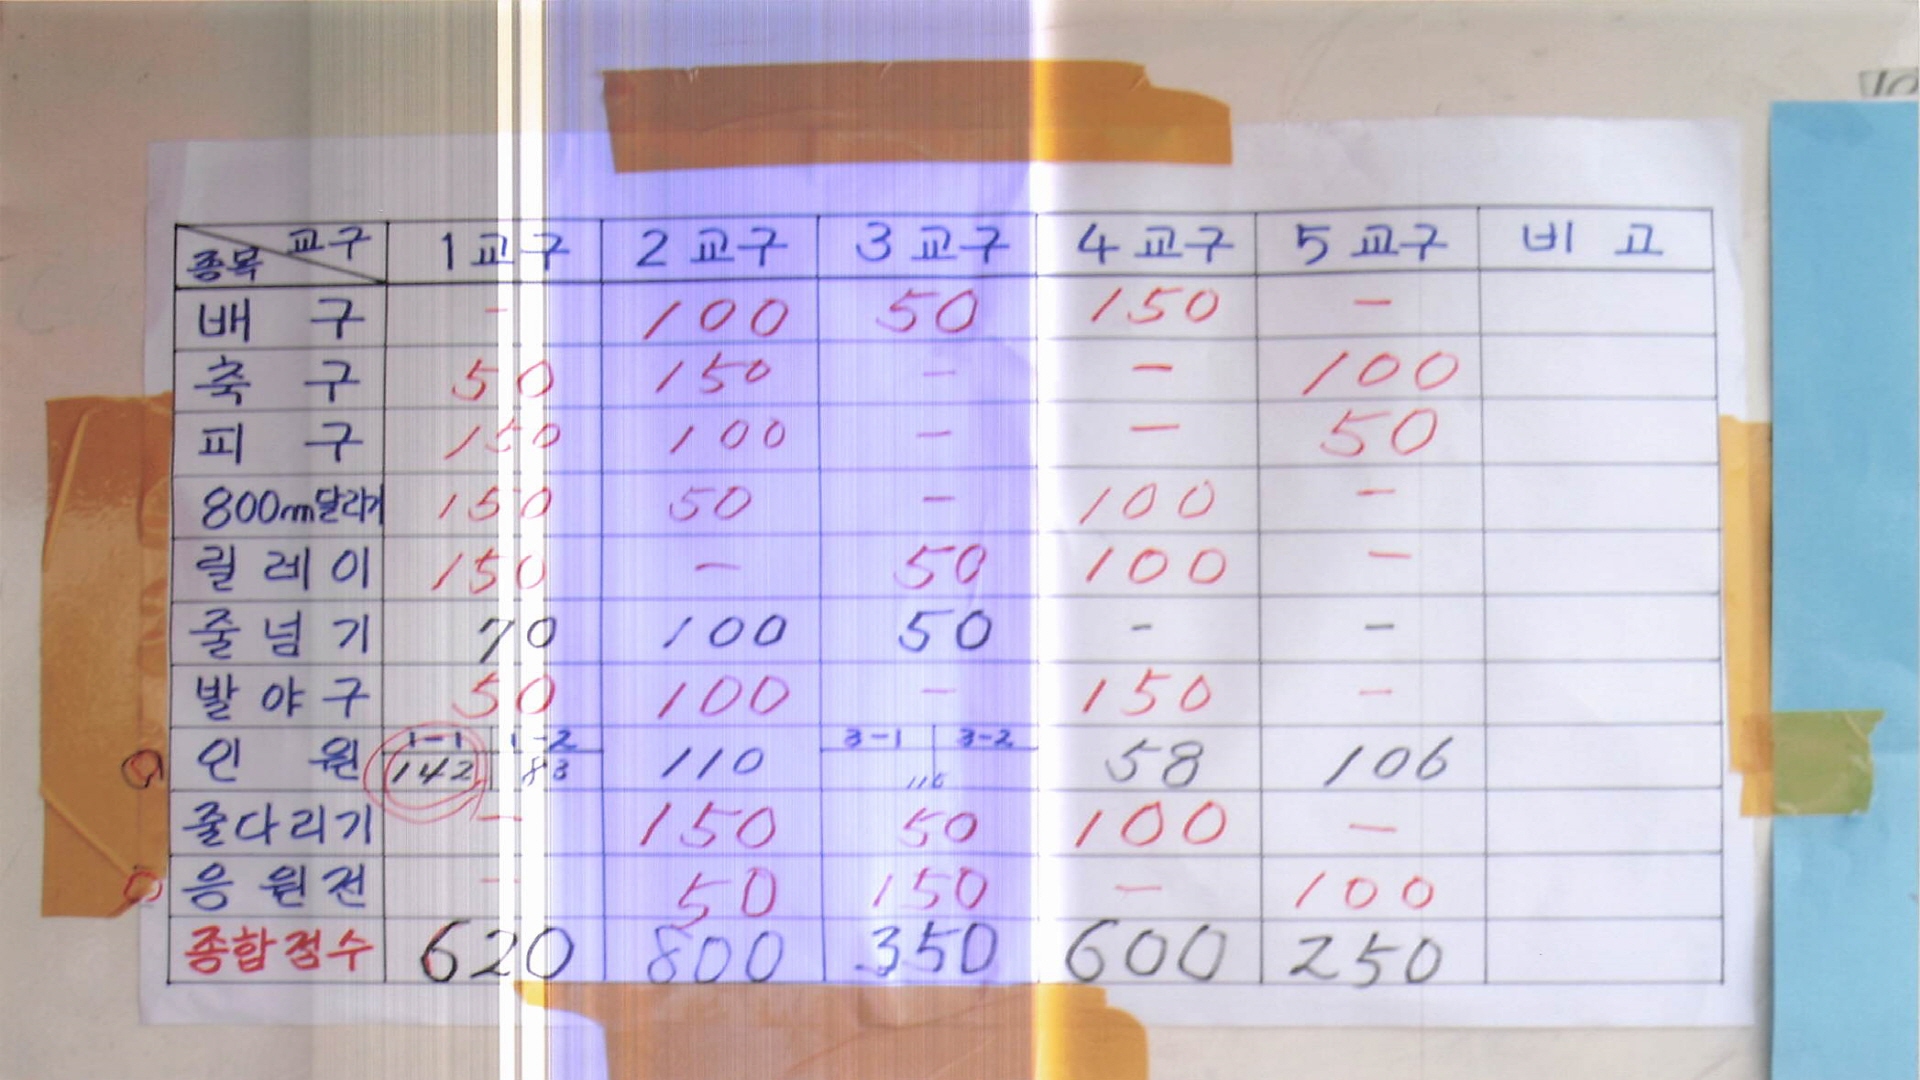 종목 교구 1교구 2교구 3교구 4교구 5교구 비고
배구 - 100 50 150 -
축구 50 150 - - 100
피구 150 100 - - 50
800m달리기 150 50 - 100 -
릴레이 150 - 50 100 -
줄넘기 70 100 50 - -
발야구 50 100 - 150 -
인원 1-1 142 1-2 83 110 3-1 3-2 116 58 106
줄다리기 - 150 50 100 -
응원전 - 50 150 - 100
종합점수 620 800 350 600 250